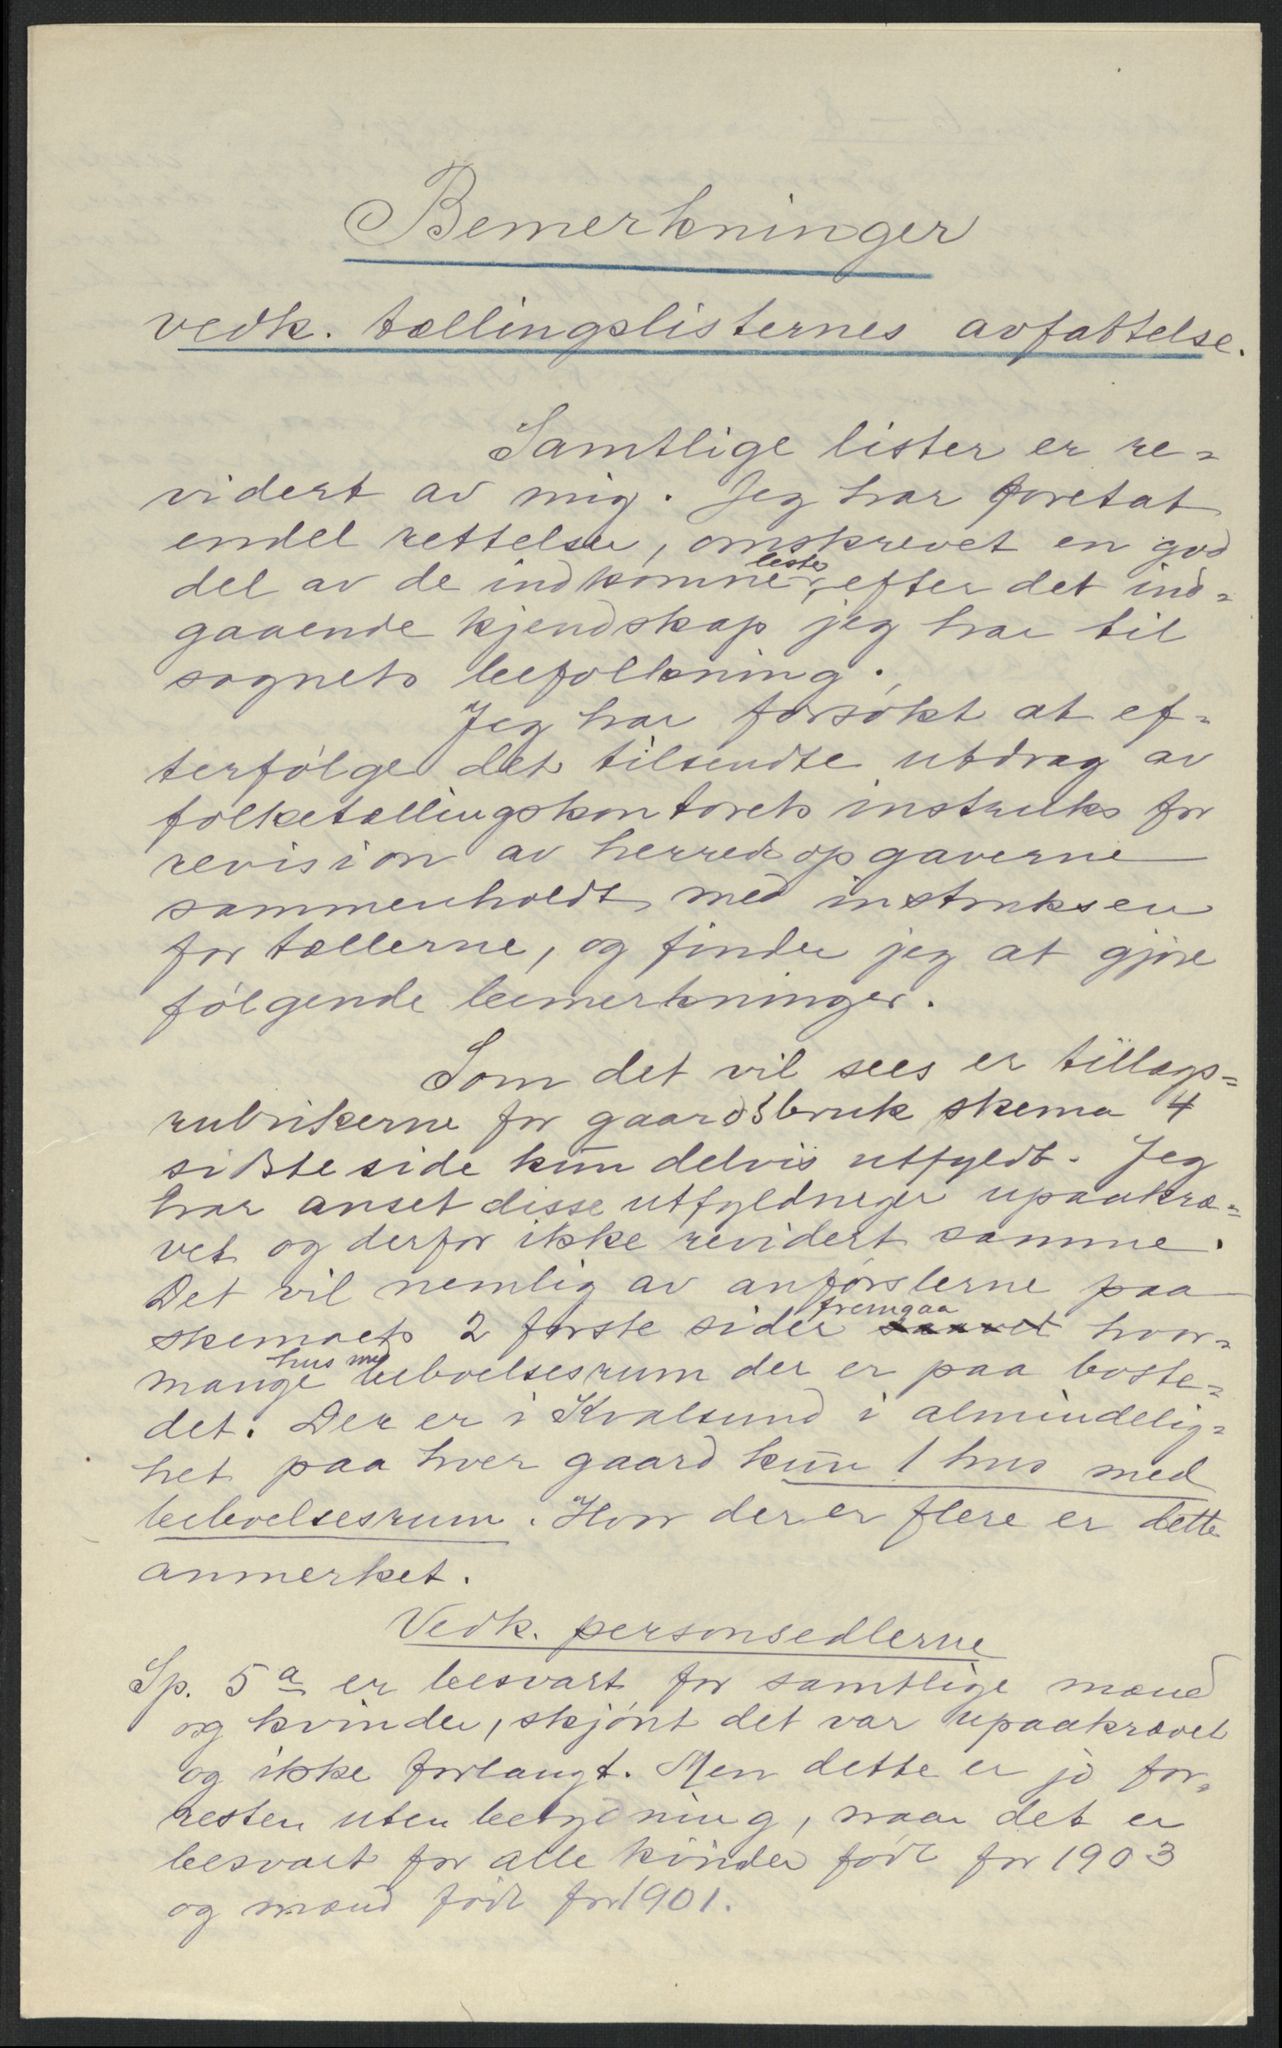 Bemerkninger
vedk. tællingslisternes avfattelse.
Samtlige lister er re-
vidert av mig. Jeg har foretat
endel rettelser, omskrevet en god
del av de indkomne lister, efter det ind-
gaaende kjendskap jeg har til
sognets befolkning.
Jeg har forsøkt at ef-
terfølge det tilsendte utdrag av
folketællingskontorets instruks for
revision av herredsopgaverne
sammenholdt med instruksen
for tællerne, og finder jeg at gjøre
følgende bemerkninger.
Som det vil sees er tillægs-
rubrikerne for gaardsbruk skema 4
sidste side kun delvis utfyldt. Jeg
har anset disse utfyldninger upaakræ-
vet og derfor ikke revidert samme.
Det vil nemlig av anførslerne paa
skemaets 2 første sider fremgaa hvor-
mange hus med beboelsesrum der er paa boste-
det. Der er i Kvalsund i almindelig-
het paa hver gaard kun 1 hus med
beboelsesrum. Hvor der er flere er dette
anmerket.
Vedk. personsedlerne
Sp. 5a er besvart for samtlige mænd
og kvinder, skjønt det var upaakrævet
og ikke forlangt. Men dette er jo for-
resten uten betydning, naar det er
besvart for alle kvinder født før 1903
og mænd født før 1901.